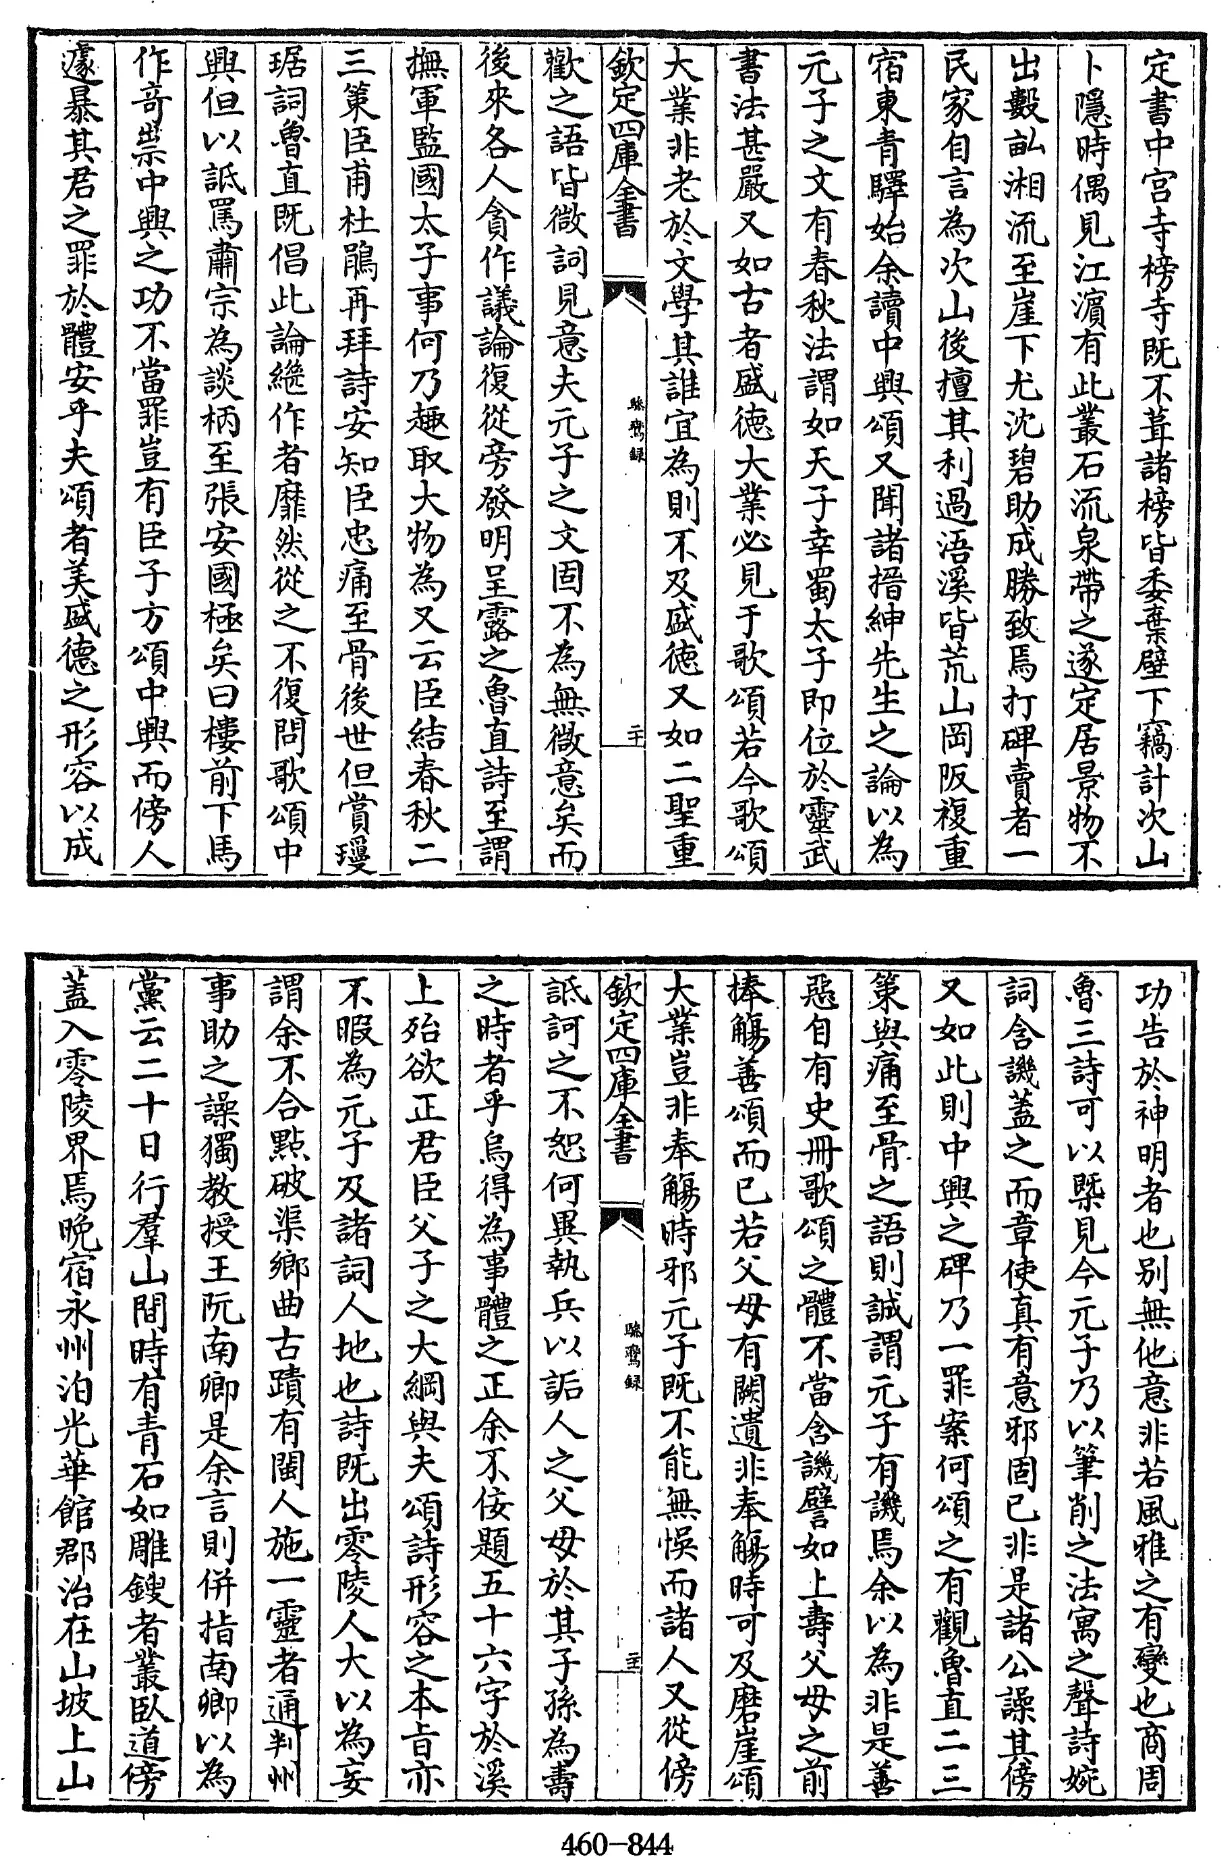 定書中宮寺榜寺既不葺諸榜皆委棄壁下竊計次山
卜隱時偶見江濵有此叢石流泉帶之遂定居景物不
出數畝湘流至崖下尤沈碧助成勝致焉打碑賣者一
民家自言為次山後擅其利過浯溪皆荒山岡阪複重
宿東青驛始余讀中興頌又聞諸搢紳先生之論以為
元子之文有春秋法謂如天子幸蜀太子即位於靈武
書法甚嚴又如古者盛徳大業必見于歌頌若今歌頌
大業非老於文學其誰宜為則不及盛徳又如二聖重
欽定四庫全書
驂鸞録
二十
歡之語皆微詞見意夫元子之文固不為無微意矣而
後來各人貪作議論復從旁發明呈露之魯直詩至謂
撫軍監國太子事何乃趣取大物為又云臣結春秋二
三策臣甫杜鵑再拜詩安知臣忠痛至骨後世但賞瓊
琚詞魯直既倡此論繼作者靡然從之不復問歌頌中
興但以詆罵肅宗為談柄至張安國極矣曰樓前下馬
作竒祟中興之功不當罪豈有臣子方頌中興而傍人
遽暴其君之罪於體安乎夫頌者美盛徳之形容以成
功告於神明者也别無他意非若風雅之有變也商周
魯三詩可以槩見今元子乃以筆削之法寓之聲詩婉
詞含譏蓋之而章使真有意邪固已非是諸公譟其傍
又如此則中興之碑乃一罪案何頌之有觀魯直二三
策與痛至骨之語則誠謂元子有譏焉余以為非是善
惡自有史冊歌頌之體不當含譏譬如上壽父母之前
捧觴善頌而已若父母有闕遺非奉觴時可及磨崖頌
大業豈非奉觴時邪元子既不能無悞而諸人又從傍
欽定四庫全書
驂鸞録
詆訶之不恕何異執兵以詬人之父母於其子孫為壽
之時者乎烏得為事體之正余不佞題五十六字於溪
上殆欲正君臣父子之大綱與夫頌詩形容之本旨亦
不暇為元子及諸詞人地也詩既出零陵人大以為妄
謂余不合點破渠鄉曲古蹟有閩人施一靈者通判州
事助之譟獨教授王阮南卿是余言則併指南卿以為
黨云二十日行羣山間時有青石如雕鎪者叢臥道傍
蓋入零陵界焉晚宿永州泊光華館郡治在山坡上山
460-844